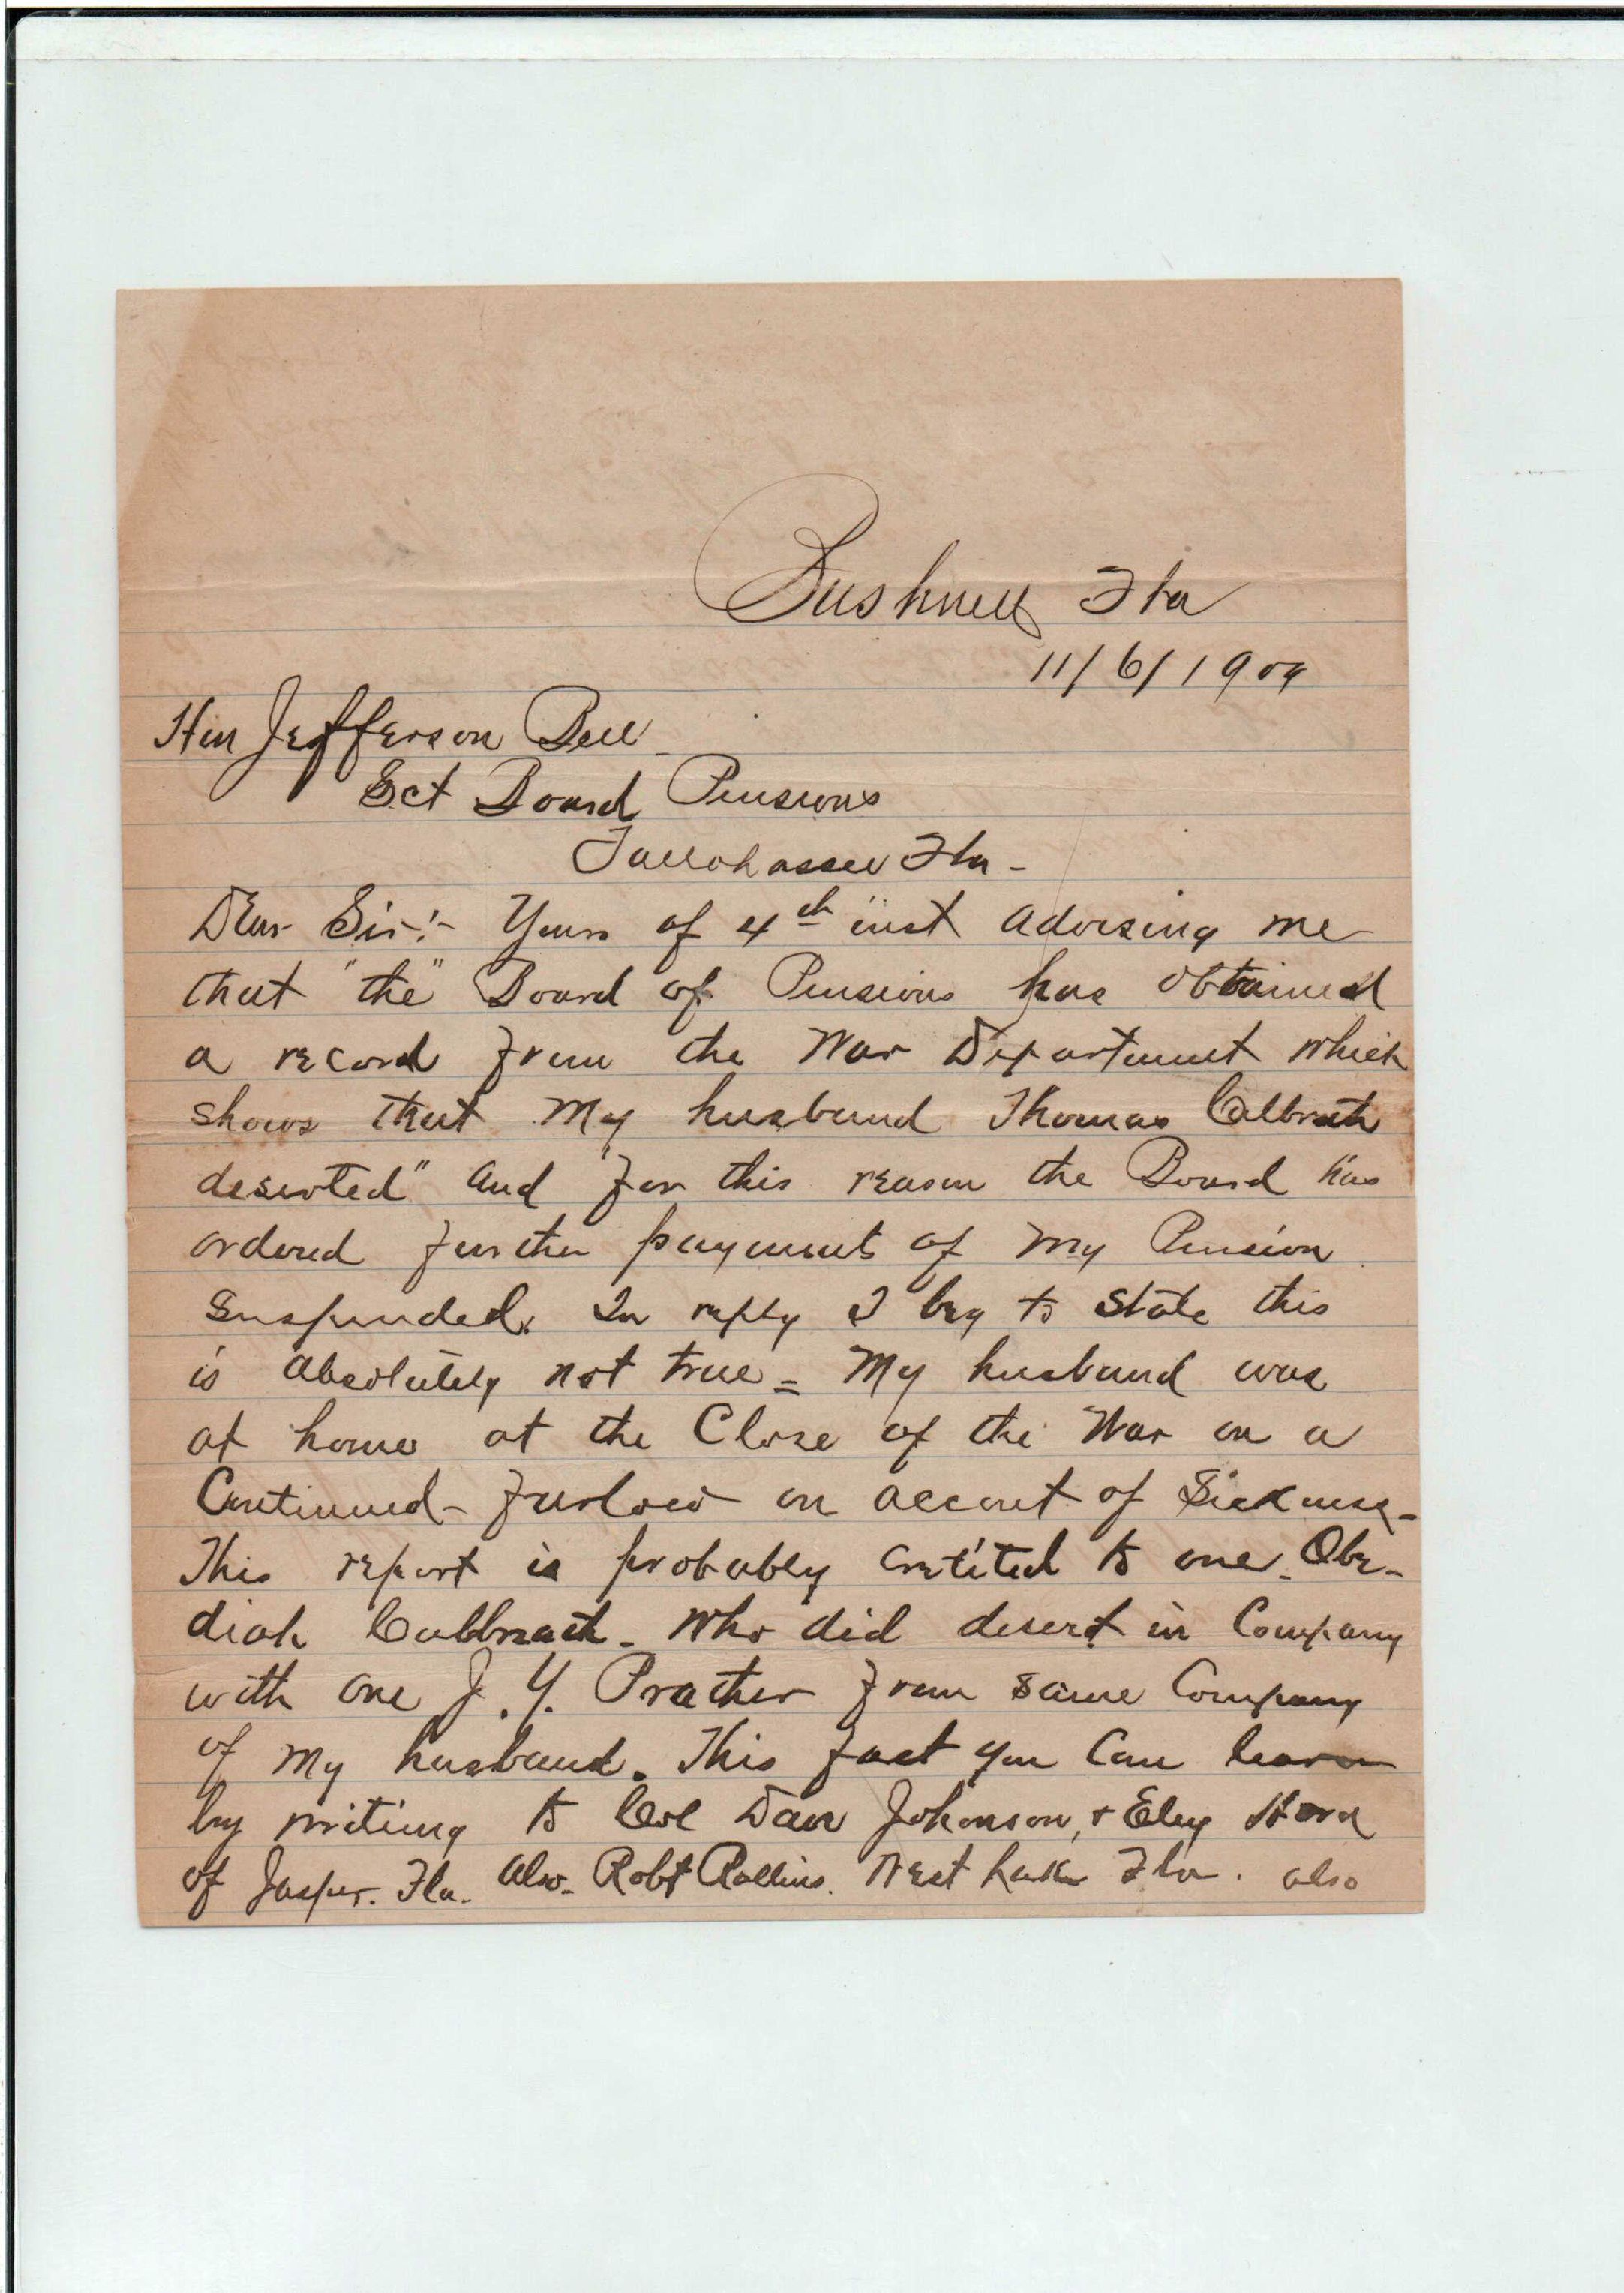 Bushnell Fla
11/6/1909
Hon Jefferson Bell
Sct Board Pensions
Tallahassee Fla -
Dear Sir:- Yours of 4th inst advising me
that "the" Board of Pensions has obtained
a record from the War Department which
shows that my husband Thomas Colbrath
deserted" and "for this reason the Board has
ordered further payments of my Pension
Suspended. In reply I beg to state this
is absolutely not true = My husband was
at home at the Close of the War on a
Continued - furlow on account of Sickness -
This report is probably cretited to one Obe-
diah Culbreath - who did desert in Company
with one J. Y. Prather from same Company
of my husband. This fact you can learn
by writing to Col Dan Johonson, + Eley
of Jasper. Fla. also - Robt Rollins. West Lake Fla. also